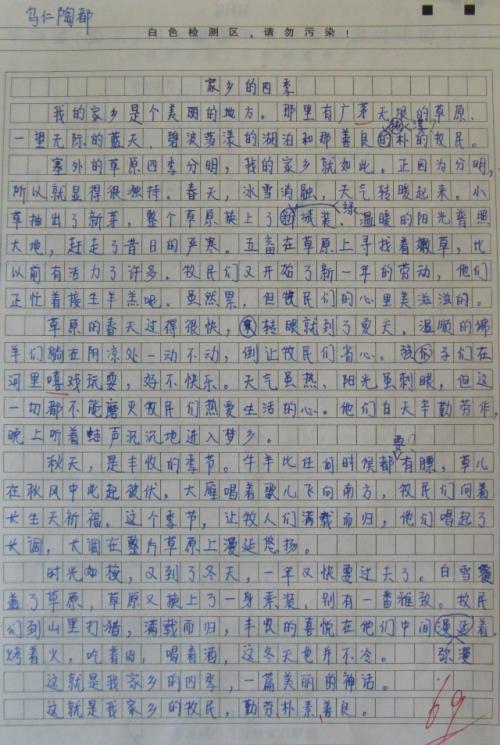 乌仁陶都
白色检测区,请勿污染!
家乡的四季
我的家乡是个美丽的地方。那里有广茅无垠的草原、
一望无际的蓝天、碧波荡漾的湖泊和那善良的朴的牧民。
塞外的草原四季分明,我的家乡就如此。正因为分明,
所以就显得很独特。春天,冰雪消融,天气转暖起来。小
绿
草抽出了新芽,整个草原换上了的城装。温暖的阳光普照
大地,赶走了昔日的严寒。五畜在草原上寻找着嫩草,比
以前有活力了许多。牧民们又开始了新一年的劳动,他们
正忙着接生羊羔呢。虽然累,但牧民们的心里美滋滋的。
草原的春天过得很快,转眼就到了夏天。温顺的绵
羊们躺在阴凉处一动不动,倒让牧民们省心。孩子们在
河里嘻戏玩耍,好不快乐。天气虽热、阳光虽刺眼,但这
一切都不能磨灭牧民们热爱生活的心。他们白天辛勤劳作,
晚上听着蛙声沉沉地进入梦乡。
要
秋天,是丰收的季节。牛羊比任何时候都有膘,草儿
在秋风中此起彼伏。大雁唱着歌儿飞向南方,牧民们向着
长生天祈福。这个季节,让牧人们满载而归,他们唱起了
长调,长调在整片草原上漫延悠扬。
时光如梭,又到了冬天,一年又快要过去了。白雪覆
盖了草原,草原又换上了一身素装,别有一番雅致。牧民
们到山里打猎,满载而归,丰收的喜悦在他们中间漫延着。
烤着火,吃着肉,喝着酒,这冬天也并不冷。
弥漫
这就是我家乡的四季,一篇美丽的神话。
这就是我家乡的牧民,勤劳、朴素、善良。
69